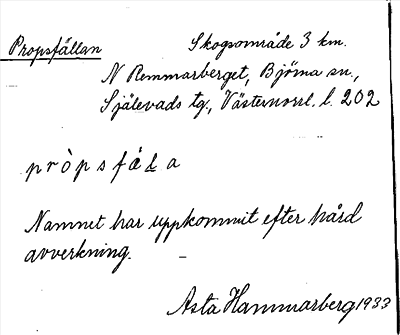 Propsfällan Skogsområde 3 km.
N Remmarberget, Björna sn.,
Själevads tg., Västernorrl. l. 202
pròpsfäḷa
Namnet har uppkommit efter hård
avverkning.
Asta Hammarberg 1933